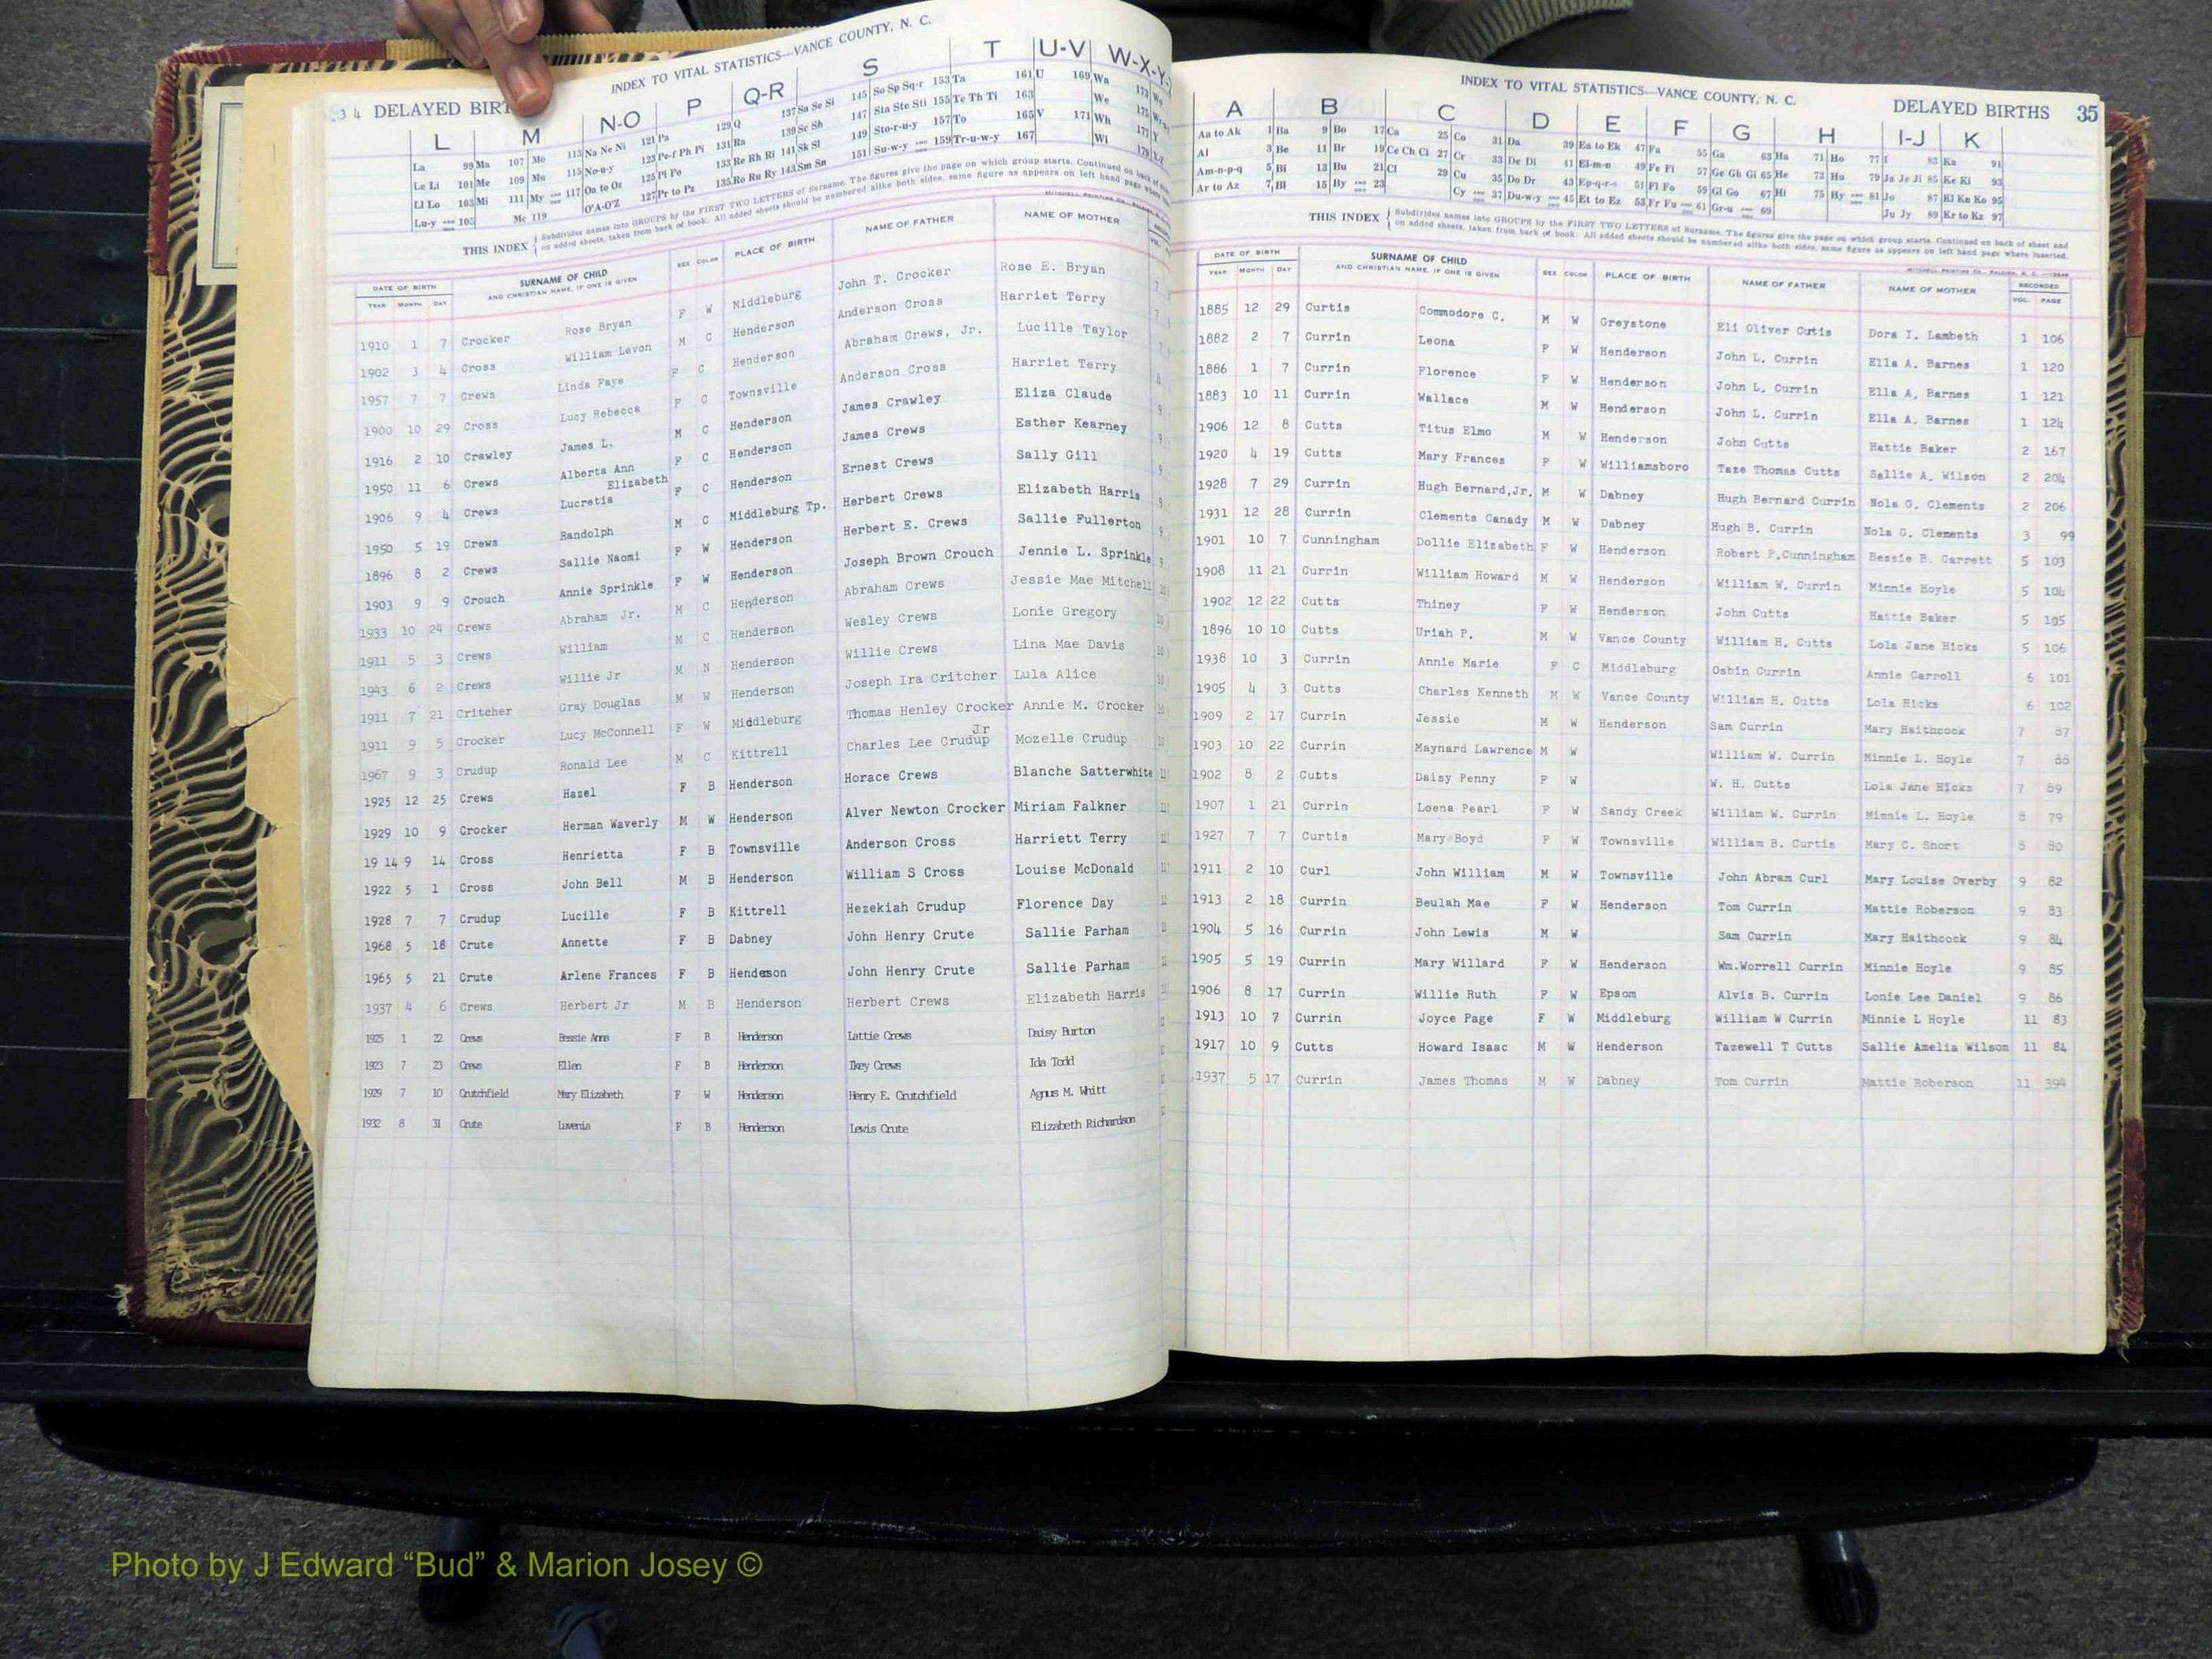 34 DELAYED BIRT
INDEX TO VITAL STATISTICS—VANCE COUNTY, N. C.
L M N-O P Q-R S T U-V W-X-Y-
La 99 Ma 107 Mo 113 Na Ne Ni 121 Pa 129 Q 137 Sa Se Si 145 So Sp Sq-r 153 Ta 161 U 169 Wa 173
Le Li 101 Me 109 Mu 115 No-u-y 123 Pe-f Ph Pi 131 Ra 139 Sc Sh 147 Sta Ste Sti 155 Te Th Ti 163 We 175
Ll Lo 103 Mi 111 My AND 117 Oa to Oz 125 Pl Po 133 Re Rh Ri 141 Sk Sl 149 Sto-r-u-y 157 To 165 V 171 Wh 177 Y
Lu-y AND 105 Mc 119 O'A-O'Z 127 Pr to Pz 135 Ro Ru Ry 143 Sm Sn 151 Su-w-y AND 159 Tr-u-w-y 167 Wi 179 X-Z
THIS INDEX { Subdivides names into GROUPS by the FIRST TWO LETTERS of Surname. The figures give the page on which group starts. Continued on back of
on added sheets, taken from back of book. All added sheets should be numbered alike both sides, same figure as appears on left hand page where
DATE OF BIRTH SURNAME OF CHILD SEX COLOR PLACE OF BIRTH NAME OF FATHER NAME OF MOTHER
YEAR MONTH DAY AND CHRISTIAN NAME, IF ONE IS GIVEN VOL.
1910 1 7 Crocker Rose Bryan F W Middleburg John T. Crocker Rose E. Bryan
1902 3 4 Cross William Levon M C Henderson Anderson Cross Harriet Terry
1957 7 7 Crews Linda Faye F C Henderson Abraham Crews, Jr. Lucille Taylor
1900 10 29 Cross Lucy Rebecca F C Townsville Anderson Cross Harriet Terry
1916 2 10 Crawley James L. M C Henderson James Crawley Eliza Claude
1950 11 6 Crews Alberta Ann Elizabeth F C Henderson James Crews Esther Kearney
1906 9 4 Crews Lucretia F C Henderson Ernest Crews Sally Gill
1950 5 19 Crews Randolph M C Middleburg Tp. Herbert Crews Elizabeth Harris
1896 8 2 Crews Sallie Naomi F W Henderson Herbert E. Crews Sallie Fullerton
1903 9 9 Crouch Annie Sprinkle F W Henderson Joseph Brown Crouch Jennie L. Sprinkle
1933 10 24 Crews Abraham Jr. M C Henderson Abraham Crews Jessie Mae Mitchell
1911 5 3 Crews William M C Henderson Wesley Crews Lonie Gregory
1943 6 2 Crews Willie Jr M N Henderson Willie Crews Lina Mae Davis
1911 7 21 Critcher Gray Douglas M W Henderson Joseph Ira Critcher Lula Alice
1911 9 5 Crocker Lucy McConnell F W Middleburg Thomas Henley Crocker Annie M. Crocker
1967 9 3 Crudup Ronald Lee M C Kittrell Charles Lee Crudup Jr Mozelle Crudup
1925 12 25 Crews Hazel F B Henderson Horace Crews Blanche Satterwhite
1929 10 9 Crocker Herman Waverly M W Henderson Alver Newton Crocker Miriam Falkner
19 14 9 14 Cross Henrietta F B Townsville Anderson Cross Harriett Terry
1922 5 1 Cross John Bell M B Henderson William S Cross Louise McDonald
1928 7 7 Crudup Lucille F B Kittrell Hezekiah Crudup Florence Day
1968 5 18 Crute Annette F B Dabney John Henry Crute Sallie Parham
1965 5 21 Crute Arlene Frances F B Henderson John Henry Crute Sallie Parham
1937 4 6 Crews Herbert Jr M B Henderson Herbert Crews Elizabeth Harris
1925 1 22 Crews Bessie Anna F B Henderson Lattie Crews Daisy Burton
1923 7 23 Crews Ellen F B Henderson Ikey Crews Ida Todd
1929 7 10 Crutchfield Mary Elizabeth F W Henderson Henry E. Crutchfield Agnus M. Whitt
1932 8 31 Crute Luvenia F B Henderson Lewis Crute Elizabeth Richardson
INDEX TO VITAL STATISTICS—VANCE COUNTY, N. C.
DELAYED BIRTHS 35
A B C D E F G H I-J K
Aa to Ak 1 Ba 9 Bo 17 Ca 25 Co 31 Da 39 Ea to Ek 47 Fa 55 Ga 63 Ha 71 Ho 77 I 83 Ka 91
Al 3 Be 11 Br 19 Ce Ch Ci 27 Cr 33 De Di 41 El-m-n 49 Fe Fi 57 Ge Gh Gi 65 He 73 Hu 79 Ja Je Ji 85 Ke Ki 93
Am-n-p-q 5 Bi 13 Bu 21 Cl 29 Cu 35 Do Dr 43 Ep-q-r-s 51 Fl Fo 59 Gl Go 67 Hi 75 Hy AND 81 Jo 87 Kl Kn Ko 95
Ar to Az 7 Bl 15 By AND 23 Cy AND 37 Du-w-y AND 45 Et to Ez 53 Fr Fu AND 61 Gr-u AND 69 Ju Jy 89 Kr to Kz 97
THIS INDEX { Subdivides names into GROUPS by the FIRST TWO LETTERS of Surname. The figures give the page on which group starts. Continued on back of sheet and
on added sheets, taken from back of book. All added sheets should be numbered alike both sides, same figure as appears on left hand page where inserted.
DATE OF BIRTH SURNAME OF CHILD SEX COLOR PLACE OF BIRTH NAME OF FATHER NAME OF MOTHER RECORDED
YEAR MONTH DAY AND CHRISTIAN NAME, IF ONE IS GIVEN VOL. PAGE
1885 12 29 Curtis Commodore C. M W Greystone Eli Oliver Cutis Dora I. Lambeth 1 106
1882 2 7 Currin Leona F W Henderson John L. Currin Ella A. Barnes 1 120
1886 1 7 Currin Florence F W Henderson John L. Currin Ella A. Barnes 1 121
1883 10 11 Currin Wallace M W Henderson John L. Currin Ella A. Barnes 1 124
1906 12 8 Cutts Titus Elmo M W Henderson John Cutts Hattie Baker 2 167
1920 4 19 Cutts Mary Frances F W Williamsboro Taze Thomas Cutts Sallie A. Wilson 2 204
1928 7 29 Currin Hugh Bernard,Jr. M W Dabney Hugh Bernard Currin Nola G. Clements 2 206
1931 12 28 Currin Clements Canady M W Dabney Hugh B. Currin Nola G. Clements 3 99
1901 10 7 Cunningham Dollie Elizabeth F W Henderson Robert P.Cunningham Bessie B. Garrett 5 103
1908 11 21 Currin William Howard M W Henderson William W. Currin Minnie Hoyle 5 104
1902 12 22 Cutts Thiney F W Henderson John Cutts Hattie Baker 5 105
1896 10 10 Cutts Uriah P. M W Vance County William H. Cutts Lola Jane Hicks 5 106
1938 10 3 Currin Annie Marie F C Middleburg Osbin Currin Annie Carroll 6 101
1905 4 3 Cutts Charles Kenneth M W Vance County William H. Cutts Lola Hicks 6 102
1909 2 17 Currin Jessie M W Henderson Sam Currin Mary Haithcock 7 87
1903 10 22 Currin Maynard Lawrence M W William W. Currin Minnie L. Hoyle 7 88
1902 8 2 Cutts Daisy Penny F W W. H. Cutts Lola Jane Hicks 7 89
1907 1 21 Currin Loena Pearl F W Sandy Creek William W. Currin Minnie L. Hoyle 8 79
1927 7 7 Curtis Mary Boyd F W Townsville William B. Curtis Mary C. Short 8 80
1911 2 10 Curl John William M W Townsville John Abram Curl Mary Louise Overby 9 82
1913 2 18 Currin Beulah Mae F W Henderson Tom Currin Mattie Roberson 9 83
1904 5 16 Currin John Lewis M W Sam Currin Mary Haithcock 9 84
1905 5 19 Currin Mary Willard F W Henderson Wm.Worrell Currin Minnie Hoyle 9 85
1906 8 17 Currin Willie Ruth F W Epsom Alvis B. Currin Lonie Lee Daniel 9 86
1913 10 7 Currin Joyce Page F W Middleburg William W Currin Minnie L Hoyle 11 83
1917 10 9 Cutts Howard Isaac M W Henderson Tazewell T Cutts Sallie Amelia Wilson 11 84
1937 5 17 Currin James Thomas M W Dabney Tom Currin Mattie Roberson 11 394
Photo by J Edward “Bud” & Marion Josey ©